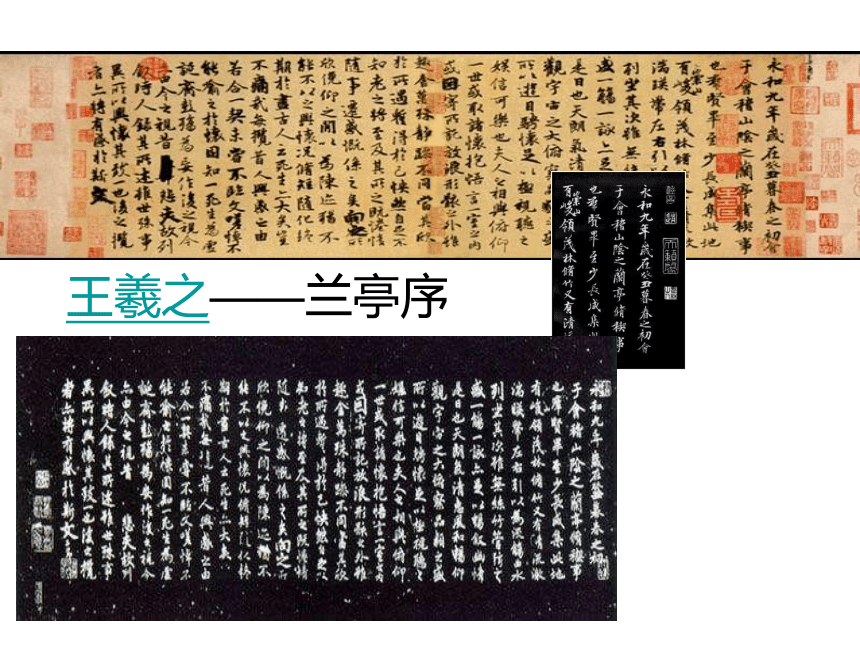 永和九年歲在癸丑暮春之初會
于會稽山陰之蘭亭脩稧事
也羣賢畢至少長咸集此地
崇山
有峻領茂林脩
湍暎帶左右引以
列坐其次雖無
盛一觴一詠上足
是日也天朗氣清
觀宇宙之大俯察品類之盛
所以遊目騁懷足以極視聽之
娛信可樂也夫人之相與俯仰
一世或取諸懷抱悟言一室之內
或因寄所託放浪形骸之外雖
趣舍萬殊靜躁不同當其欣
於所遇蹔得於己快然自足不
知老之將至及其所之既惓情
隨事遷感慨係之矣向之所
欣俛仰之間以為陳迹猶不
能不以之興懷況脩短隨化終
期於盡古人云死生亦大矣豈
不痛哉每攬昔人興感之由
若合一契未嘗不臨文嗟悼不
能喻之於懷固知一死生為虛
誕齊彭殤為妄作後之視今
亦由今之視昔悲夫故列
敘時人錄其所述雖世殊事
異所以興懷其致一也後之攬
者亦將有感於斯文
永和九年歲在癸丑暮春之初會
于會稽山陰之蘭亭脩稧事
也羣賢畢至少長咸集此
崇山
有峻領茂林脩竹又有清
王羲之——兰亭序
永和九年歲在癸丑暮春之初會
于會稽山陰之蘭亭脩稧事
也羣賢畢至少長咸集此地
有峻領茂林脩竹又有清流激
湍暎帶左右引以為流觴曲水
列坐其次雖無絲竹管弦之
盛一觴一詠上足以暢敘幽情
是日也天朗氣清惠風和暢仰
觀宇宙之大俯察品類之盛
所以遊目騁懷足以極視聽之
娛信可樂也夫人之相與俯仰
一世或取諸懷抱悟言一室之內
或因寄所託放浪形骸之外雖
趣舍萬殊靜躁不同當其欣
於所遇蹔得於己快然自足不
知老之將至及其所之既惓情
隨事遷感慨係之矣向之所
欣俛仰之間以為陳迹猶不
能不以之興懷況脩短隨化終
期於盡古人云死生亦大矣
不痛哉每攬昔人興感之由
若合一契未嘗不臨文嗟悼不
能喻之於懷固知一死生為虛
誕齊彭殤為妄作後之視今
亦由今之視昔悲夫故列
敘時人錄其所述雖世殊事
異所以興懷其致一也後之攬
者亦將有感於斯文